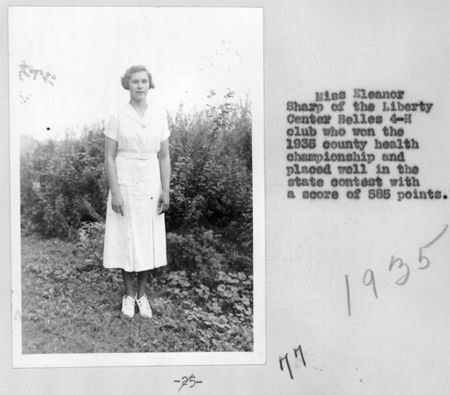 Miss Eleanor
Sharp of the Liberty
Center Belles 4-H
club who won the
1935 county health
championship and
placed well in the
state contest with
a score of 585 points.
1935
77
-25-